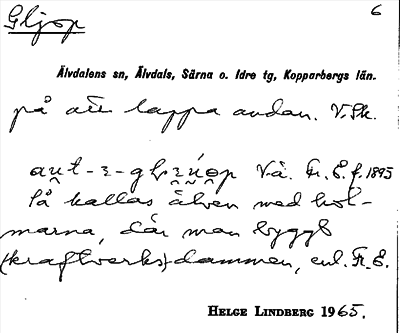 Gljop
6
Älvdalens sn, Älvdals, Särna o. Idre tg, Kopparbergs län.
på att tappa andan. V.Sk.
V-å. Fr. E. f. 1895
Så kallas älven med hol-
marna, där man byggt
(kraftverks)dammen, enl. Fr. E.
HELGE LINDBERG 1965.